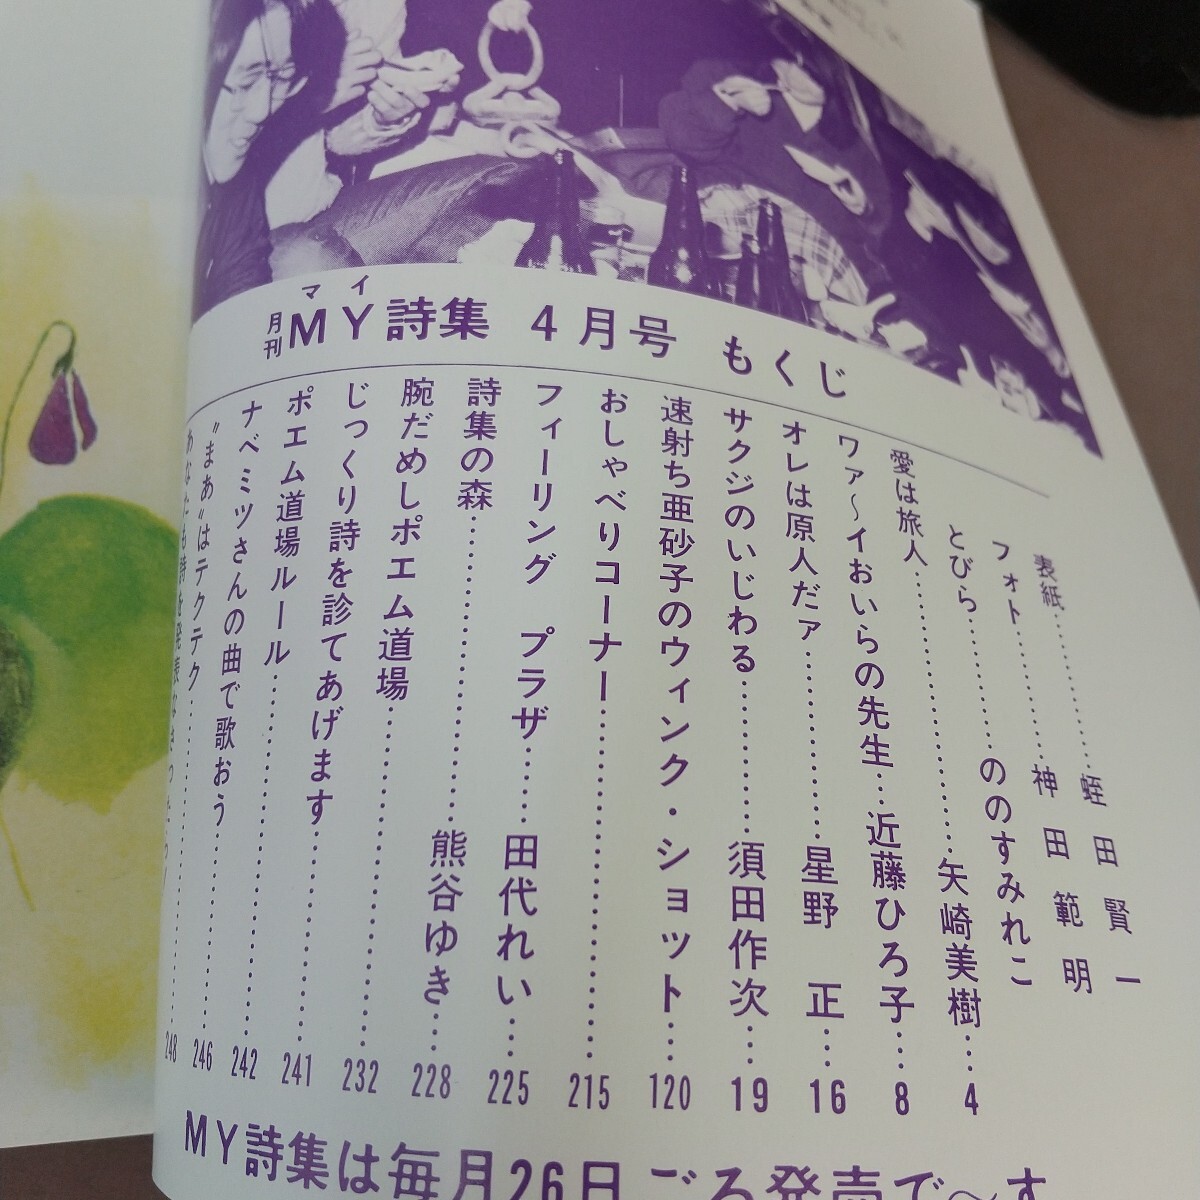 マイ
月刊 MY詩集 4月号 もくじ
表紙………………蛭田賢一
フォト………………神田範明
とびら………………ののすみれこ
愛は旅人………………矢崎美樹…4
ワァ〜イおいらの先生…近藤ひろ子…8
オレは原人だァ………………星野 正…16
サクジのいじわる………………須田作次…19
速射ち亜砂子のウィンク・ショット……120
おしゃべりコーナー………………215
フィーリング プラザ……田代れい…225
詩集の森………………熊谷ゆき…228
腕だめしポエム道場………………232
じっくり詩を診てあげます………………
ポエム道場ルール………………241
ナベミツさんの曲で歌おう………………242
〝まあ〟はテクテク………………246
あなたも詩を発表なさ
248
MY詩集は毎月26日ごろ発売で〜す